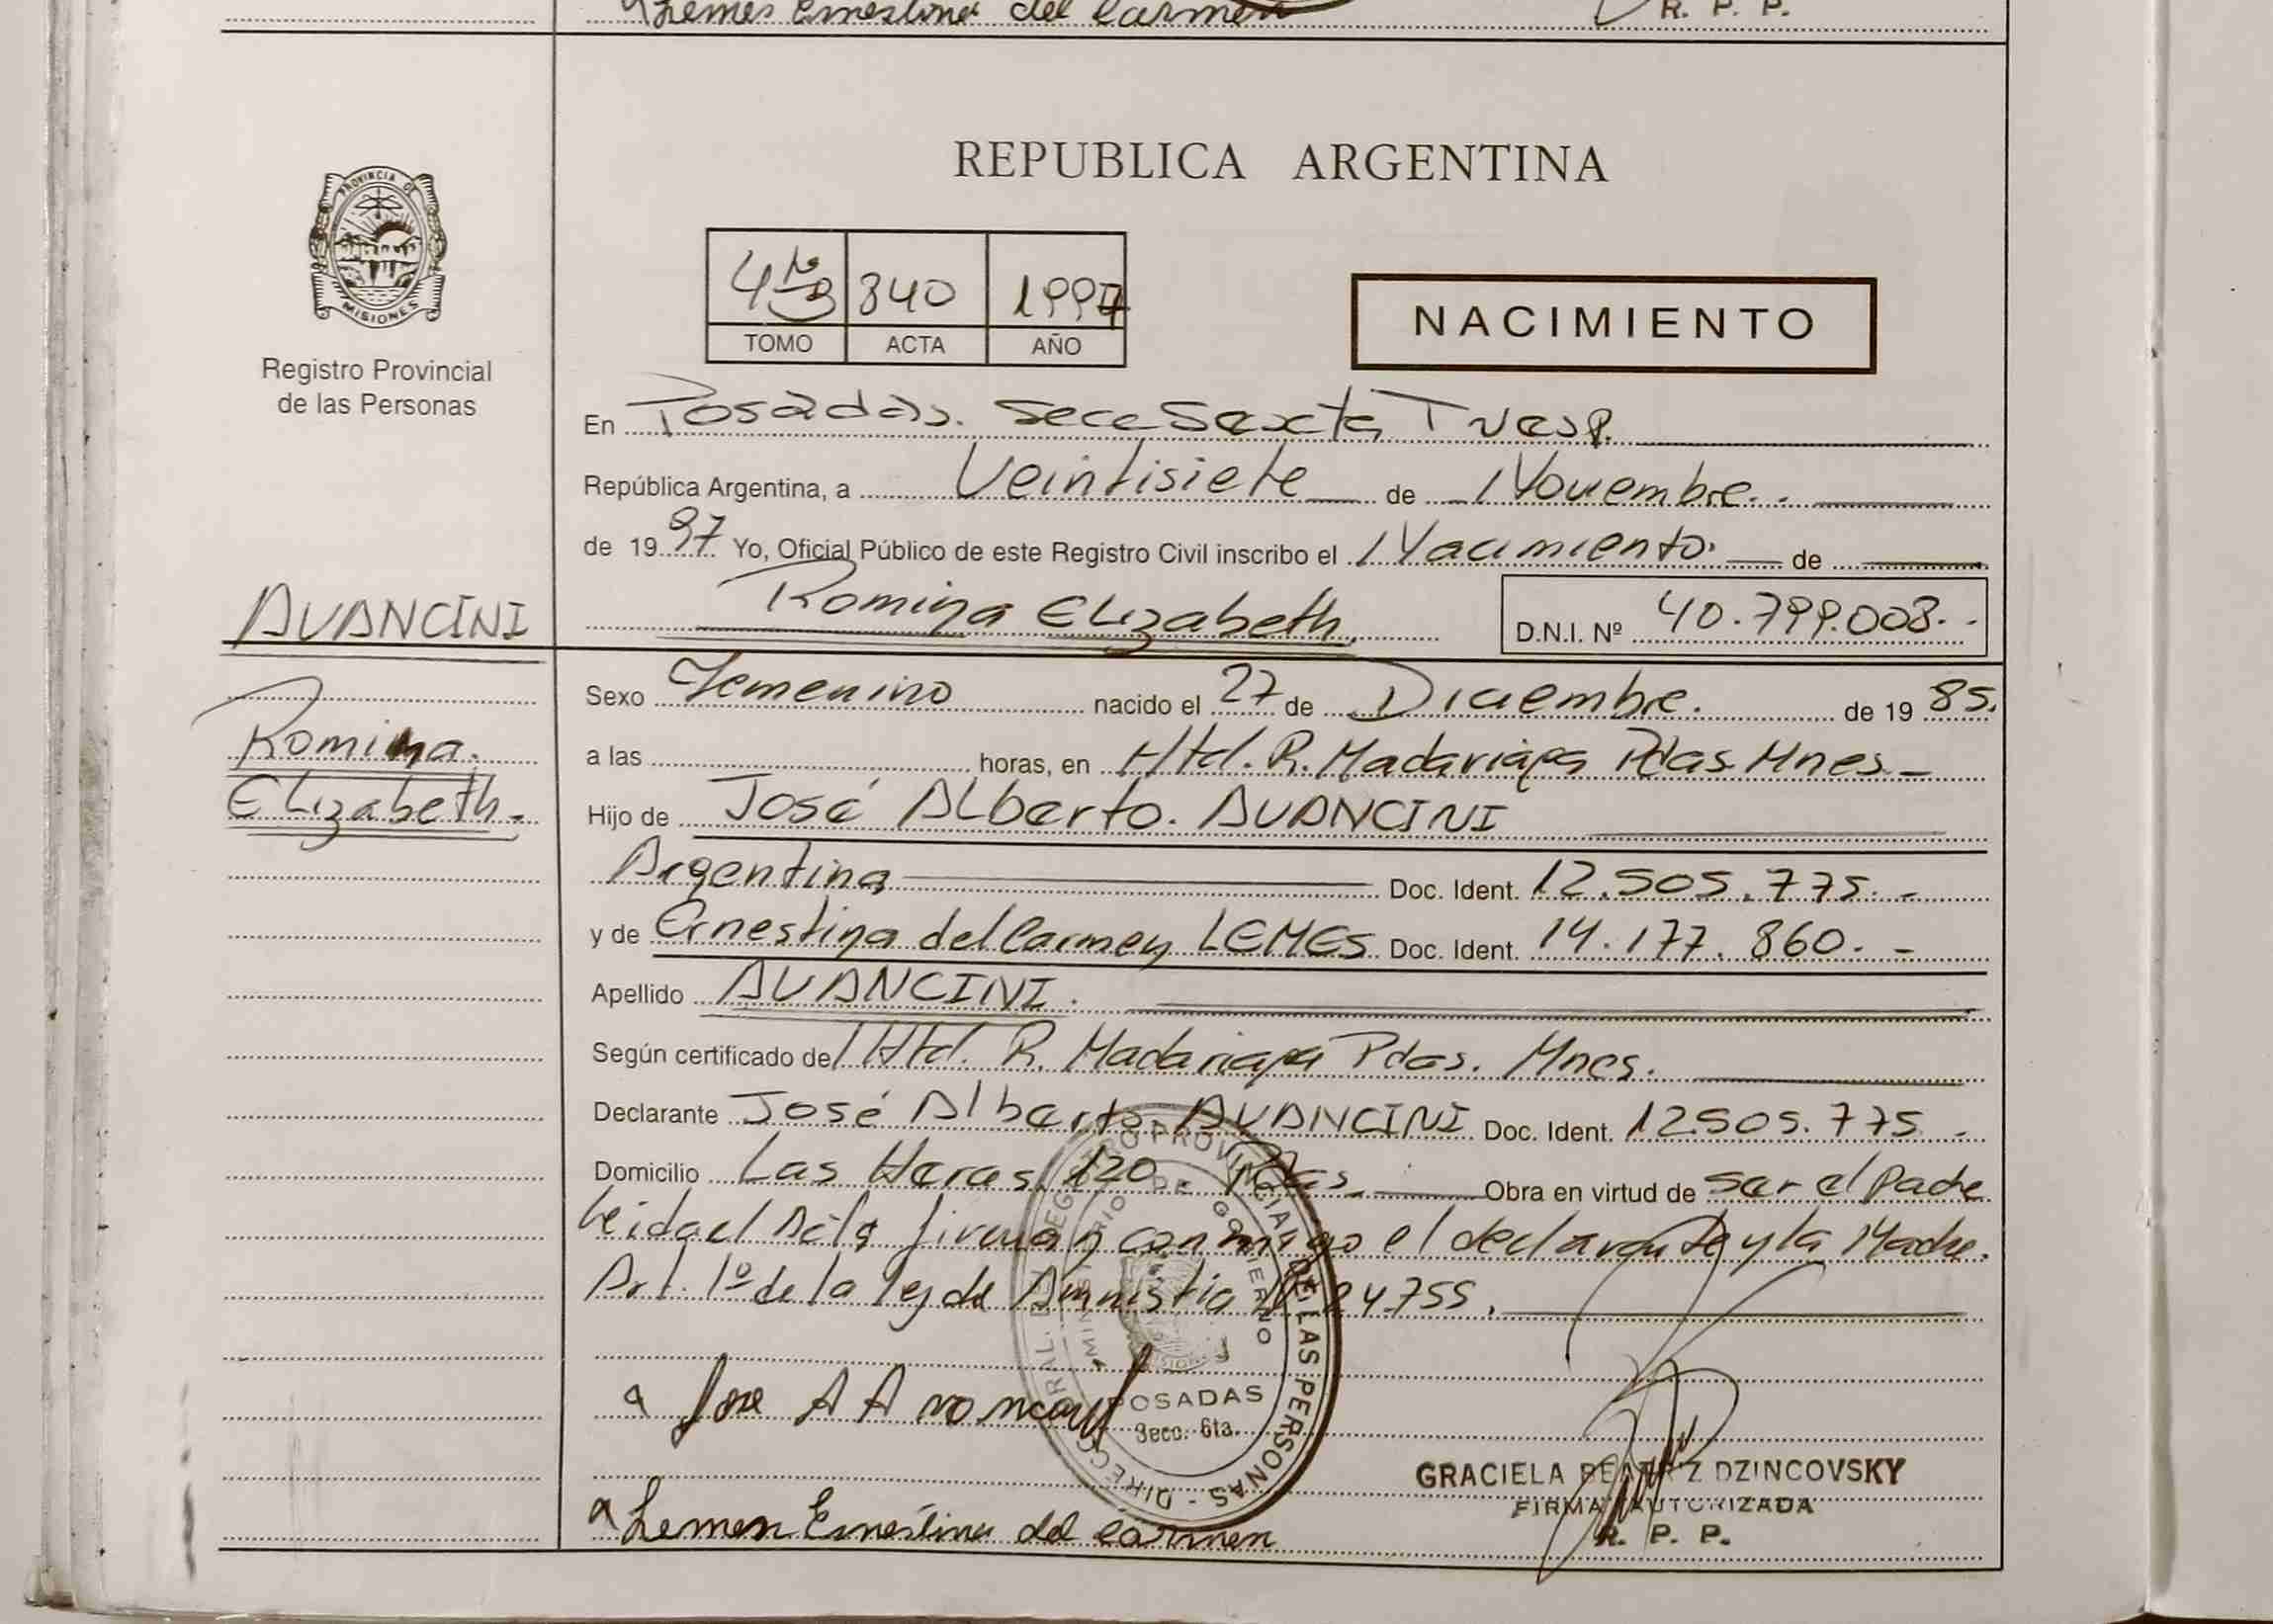 Lemes Ernestina del Carmen
R. P. P.
PROVINCIA DE
MISIONES
Registro Provincial
de las Personas
REPUBLICA ARGENTINA
840 1997
TOMO ACTA AÑO
NACIMIENTO
En Posadas. Secc Sexta
República Argentina, a Veintisiete de Novembre.
de 1997 Yo, Oficial Público de este Registro Civil inscribo el Nacimiento. de
AVANCINI
Romina Elizabeth.
D.N.I. Nº 40.799.008.-
Romina
Elizabeth.-
Sexo Femenino nacido el 27 de Diciembre. de 1985.
a las horas, en Htal. R. Madariaga Pdas Mnes-
Hijo de José Alberto. AVANCINI
Argentina Doc. Ident. 12.505.775.-
y de Ernestina del Carmen LEMES Doc. Ident. 14.177.860.-
Apellido AVANCINI.
Según certificado del Htal. R. Madariaga Pdas. Mnes.
Declarante José Alberto AVANCINI Doc. Ident. 12.505.775.-
Domicilio Las Heras 120. Pdas. Obra en virtud de ser el Padre
leida el Acta firman conmigo el declarante y la Madre.
Art. 1º de la ley de Amnistia Nº 24.755.
DIRECC GRAL. DEL REGISTRO PROVINCIAL DE LAS PERSONAS -
MINISTERIO DE GOBIERNO
POSADAS
Secc. 6ta.
Jose A Avancini
GRACIELA BEATRIZ DZINCOVSKY
FIRMA AUTORIZADA
R. P. P.
Lemes Ernestina del Carmen